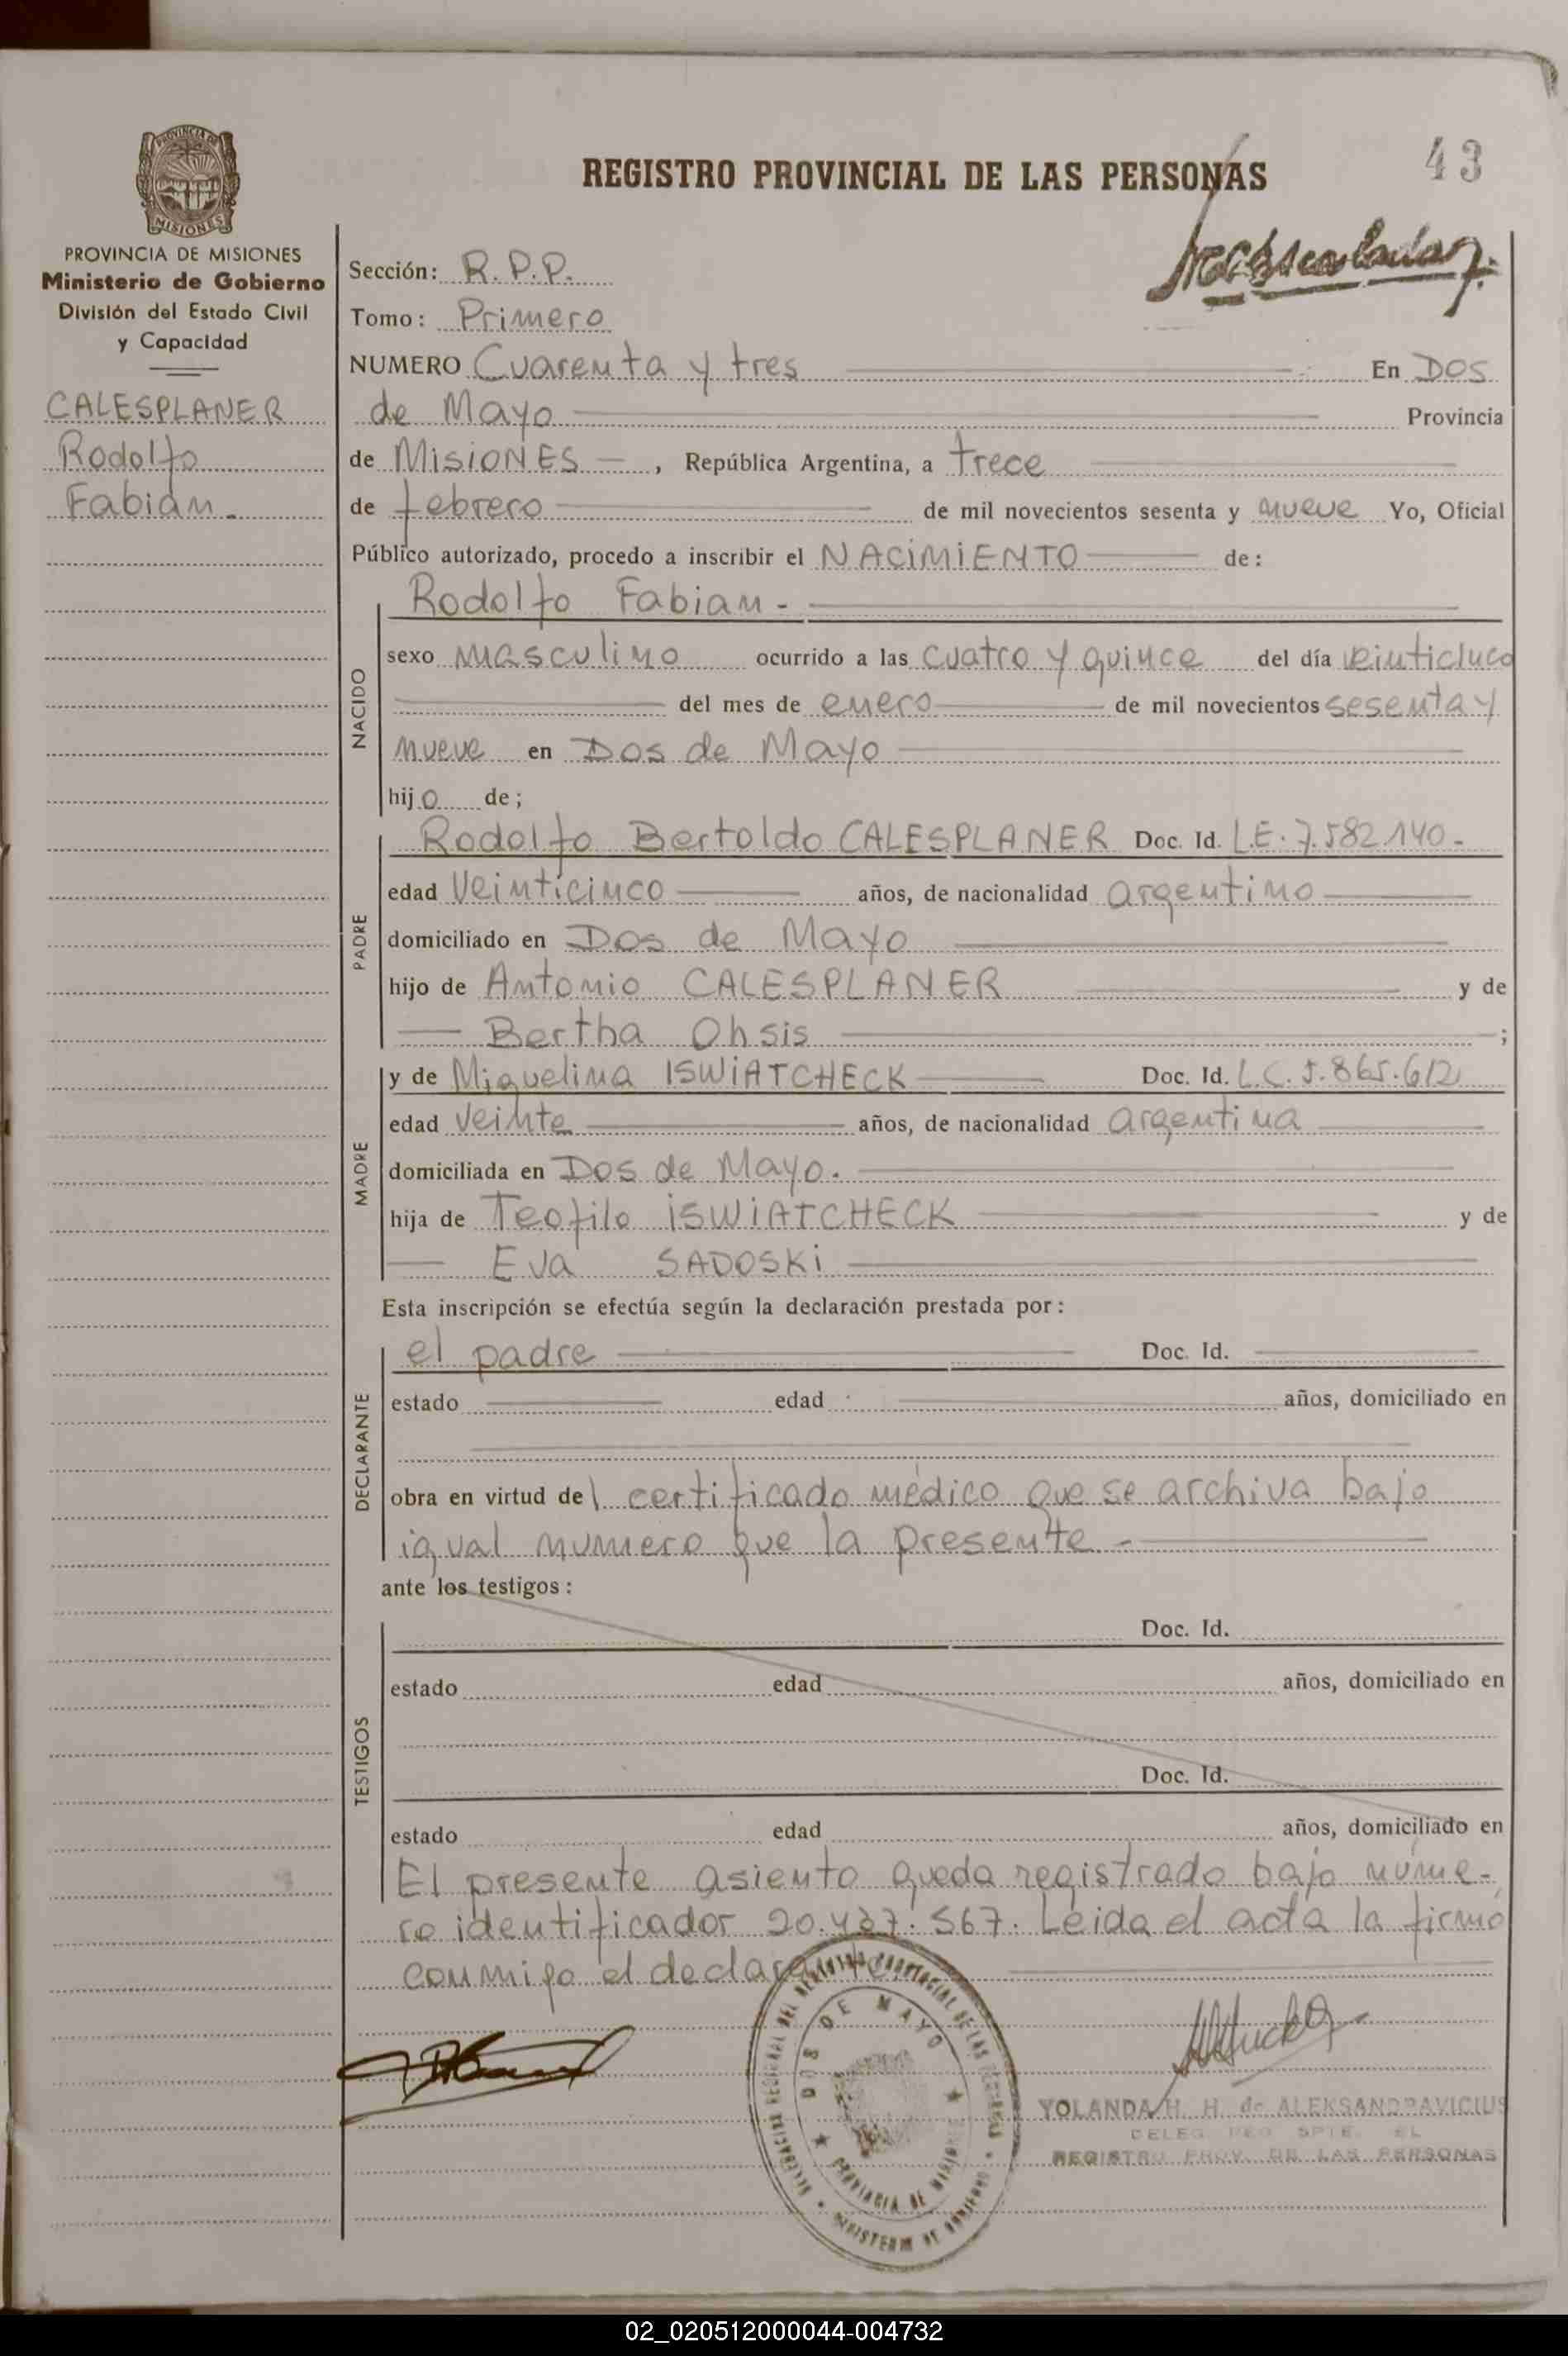 REGISTRO PROVINCIAL DE LAS PERSONAS
43
PROVINCIA DE
MISIONES
PROVINCIA DE MISIONES
Ministerio de Gobierno
División del Estado Civil
y Capacidad
CALESPLANER
Rodolfo
Fabián.
Sección: R.P.P.
Tomo: Primero
NUMERO Cuarenta y tres En Dos
de Mayo Provincia
de MisiONES, República Argentina, a trece
de febrero de mil novecientos sesenta y nueve Yo, Oficial
Público autorizado, procedo a inscribir el NACIMIENTO de:
NACIDO
Rodolfo Fabian -
sexo masculino ocurrido a las cuatro y quince del día veinticinco
del mes de enero de mil novecientos sesenta y
nueve en Dos de Mayo
hijo de;
PADRE
Rodolfo Bertoldo CALESPLANER Doc. Id. L.E. 7.582.140.
edad veinticinco años, de nacionalidad argentino
domiciliado en Dos de Mayo
hijo de Antonio CALESPLANER y de
Bertha Ohsis ;
MADRE
y de Miguelina ISWIATCHECK Doc. Id. L.C. 5.865.612
edad veinte años, de nacionalidad argentina
domiciliada en Dos de Mayo.
hija de Teofilo ISWIATCHECK y de
Eva SADOSKi
Esta inscripción se efectúa según la declaración prestada por:
DECLARANTE
el padre Doc. Id.
estado edad años, domiciliado en
obra en virtud del certificado médico que se archiva bajo
igual numero que la presente -
ante los testigos:
TESTIGOS
Doc. Id.
estado edad años, domiciliado en
Doc. Id.
estado edad años, domiciliado en
El presente asiento queda registrado bajo núme-
ro identificador 20.437.567. Leida el acta la firma
conmigo el declarante
DELEGACION REGIONAL DEL REGISTRO PROVINCIAL DE LAS PERSONAS
DOS DE MAYO
PROVINCIA DE MISIONES
MINISTERIO DE GOBIERNO
YOLANDA H. H. de ALEKSANDRAVICIUS
REGISTRO PROV. DE LAS PERSONAS
02_020512000044-004732